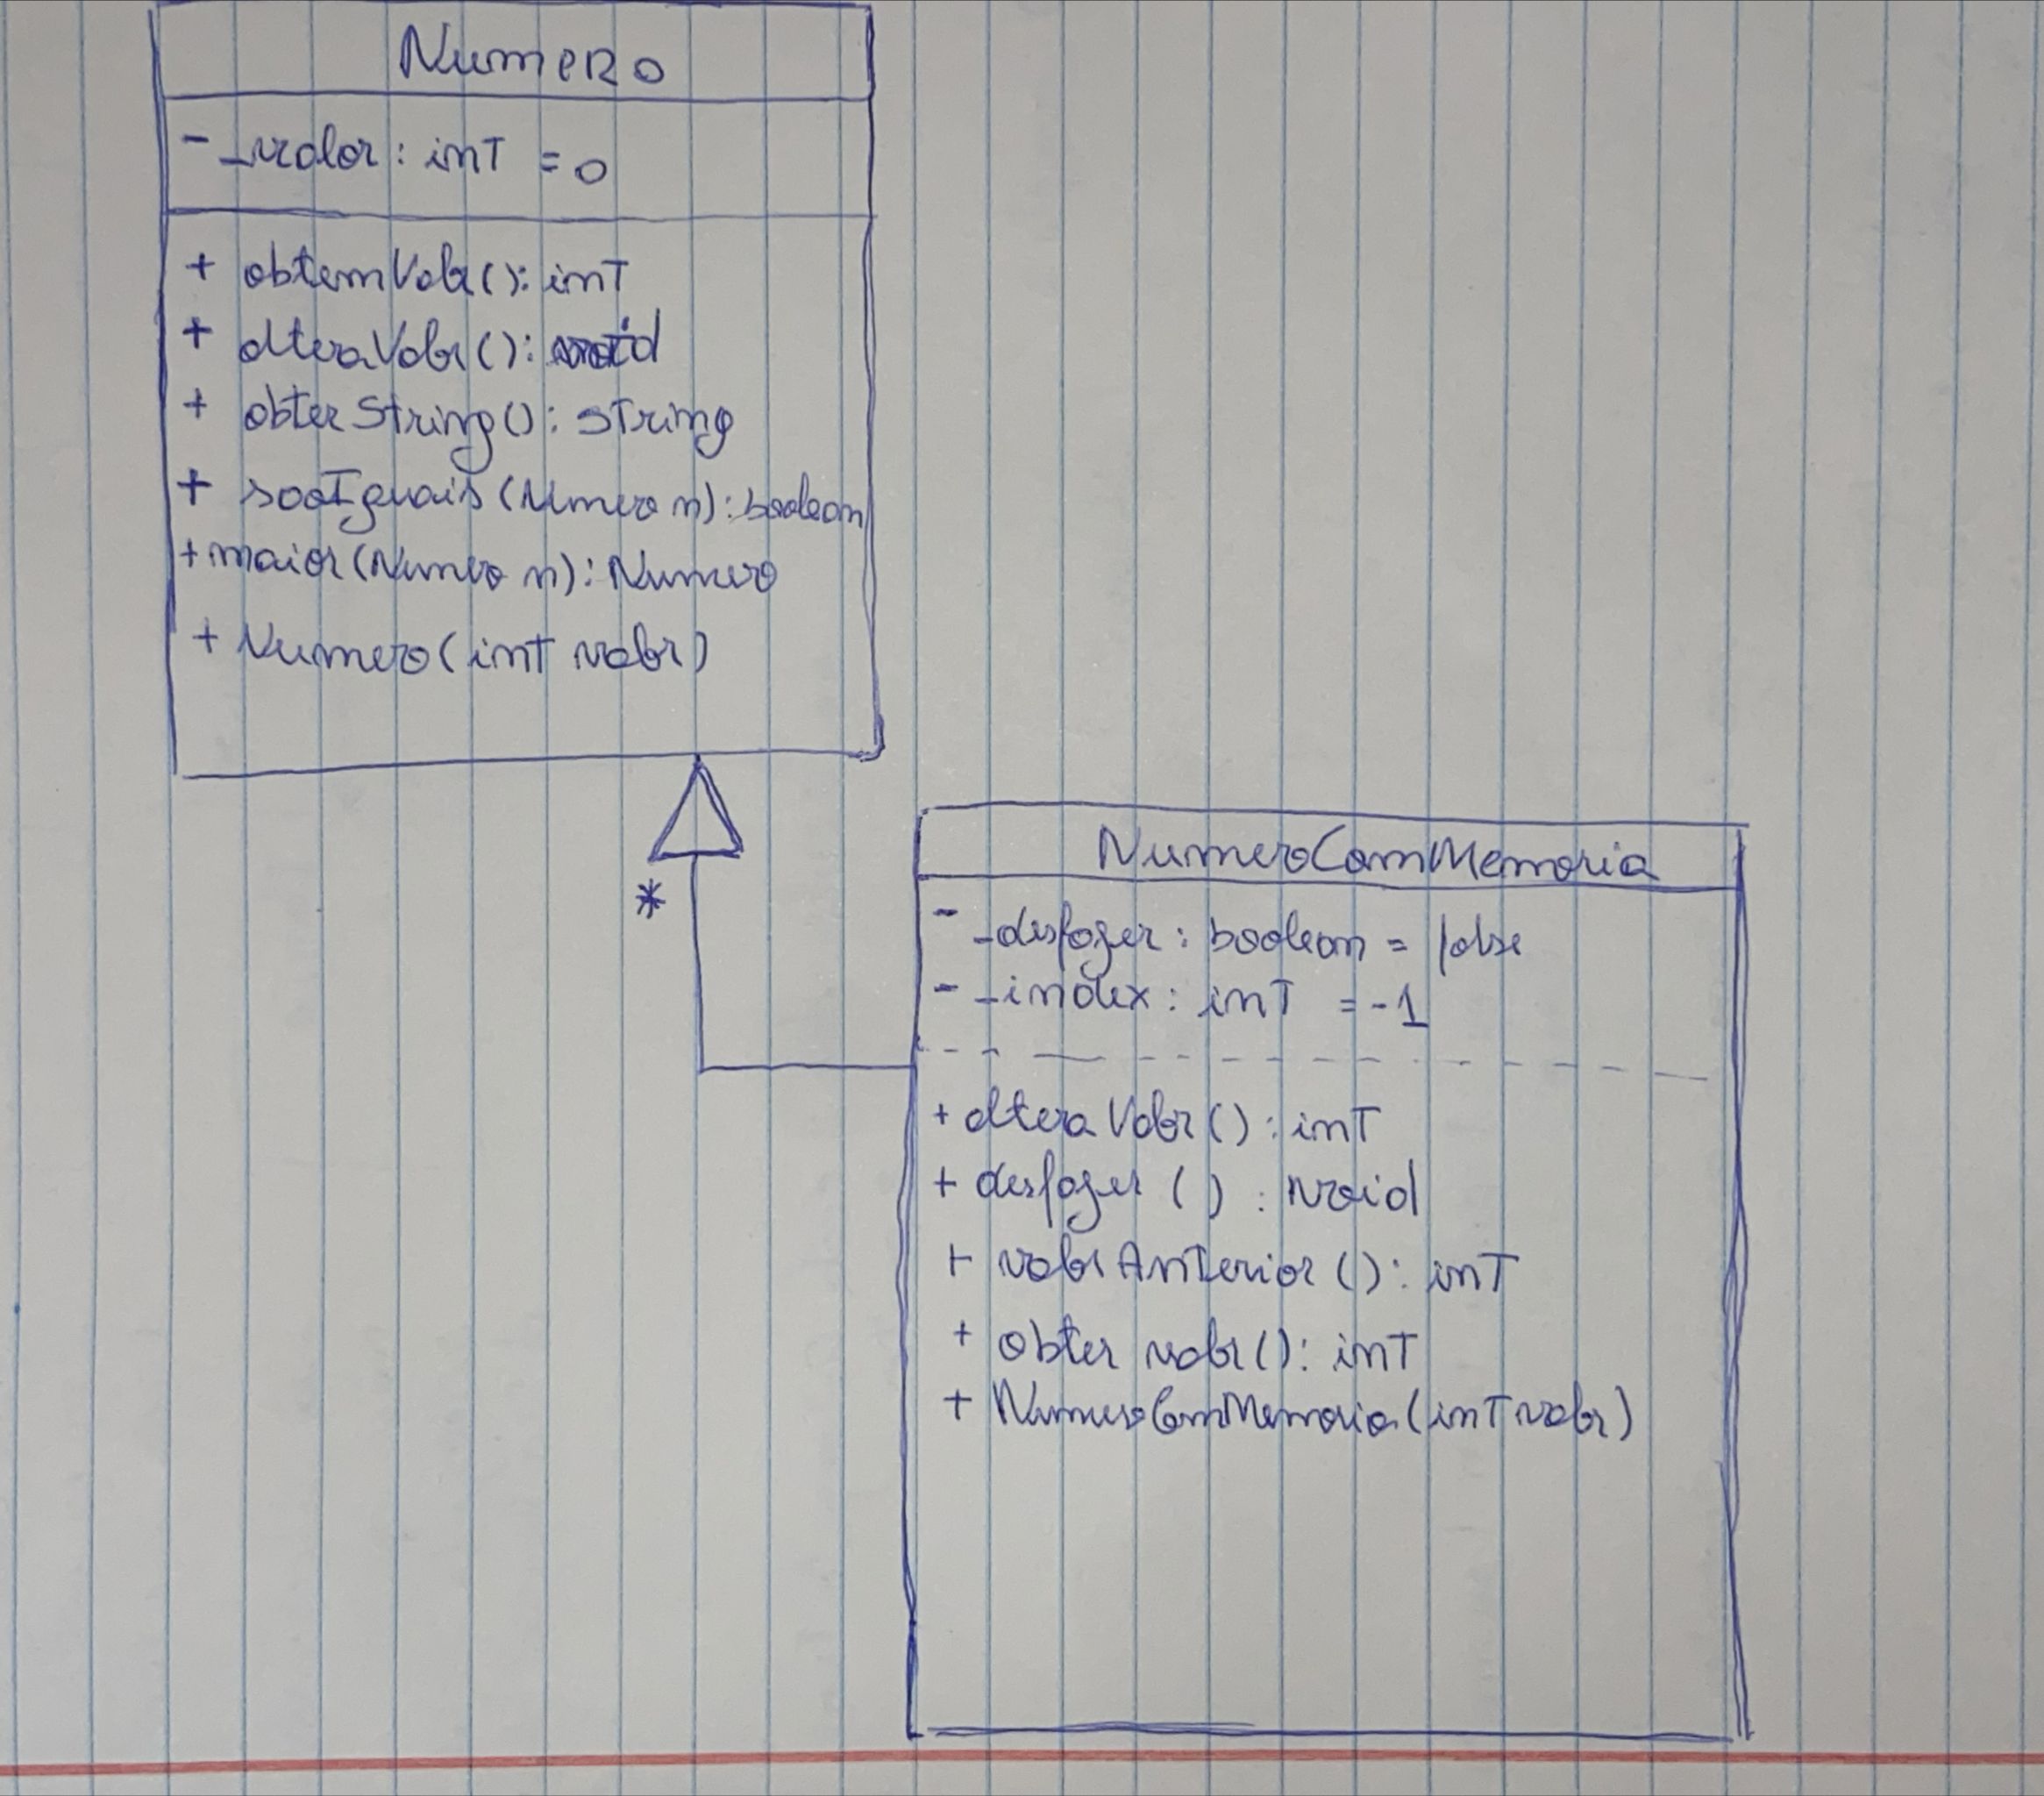 Numero
- _valor: int = 0
+ obtemValor(): int
+ alteraValor(): void
+ obterString(): string
+ saoIguais(Numero n): boolean
+ maior(Numero n): Numero
+ Numero(int valor)
*
NumeroComMemoria
- _desfazer: boolean = false
- _index: int = -1
+ alteraValor(): int
+ desfazer(): void
+ valorAnterior(): int
+ obter valor(): int
+ NumeroComMemoria(int valor)